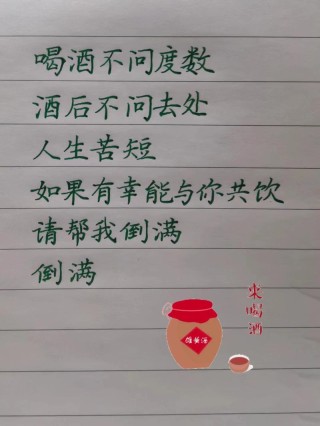 喝酒不问度数
酒后不问去处
人生苦短
如果有幸能与你共饮
请帮我倒满
倒满
来喝酒
雄黄酒